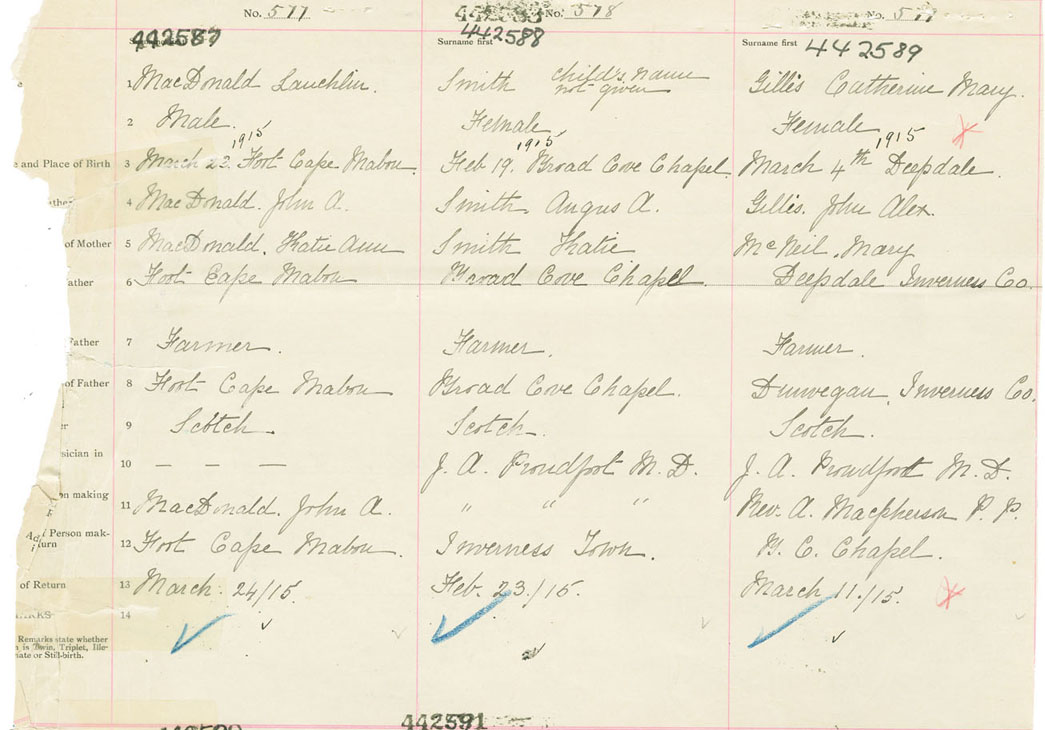 No. 577
442587
Surname first
1 MacDonald Lauchlin.
2 Male.
1915
3 March 23. Foot Cape Mabou
4 MacDonald. John A.
5 MacDonald. Katie Ann
6 Foot Cape Mabou
7 Farmer.
8 Foot Cape Mabou
9 Scotch.
10 — — —
11 MacDonald. John A.
12 Foot Cape Mabou.
13 March. 24/15.
14
No. 578
442588
Surname first
Smith child's name
not given
Female
1915
Feb 19. Broad Cove Chapel
Smith. Angus A.
Smith Katie
Broad Cove Chapel
Farmer.
Broad Cove Chapel.
Scotch.
J. A. Proudfoot M. D.
" " "
Inverness Town.
Feb. 23./15.
442591
No.
Surname first 442589
Gillis Catherine Mary.
Female
1915
March 4th Deepdale.
Gillis. John Alex.
McNeil. Mary
Deepdale Inverness Co.
Farmer.
Dunvegan. Inverness Co.
Scotch.
J. A. Proudfoot M. D.
Rev. A. Macpherson P. P.
B. C. Chapel.
March 11./15.
and Place of Birth
of Mother
ather
Father
of Father
er
sician in
on making
Person mak-
turn
of Return
Remarks state whether
is Twin, Triplet, Ille-
mate or Still-birth.